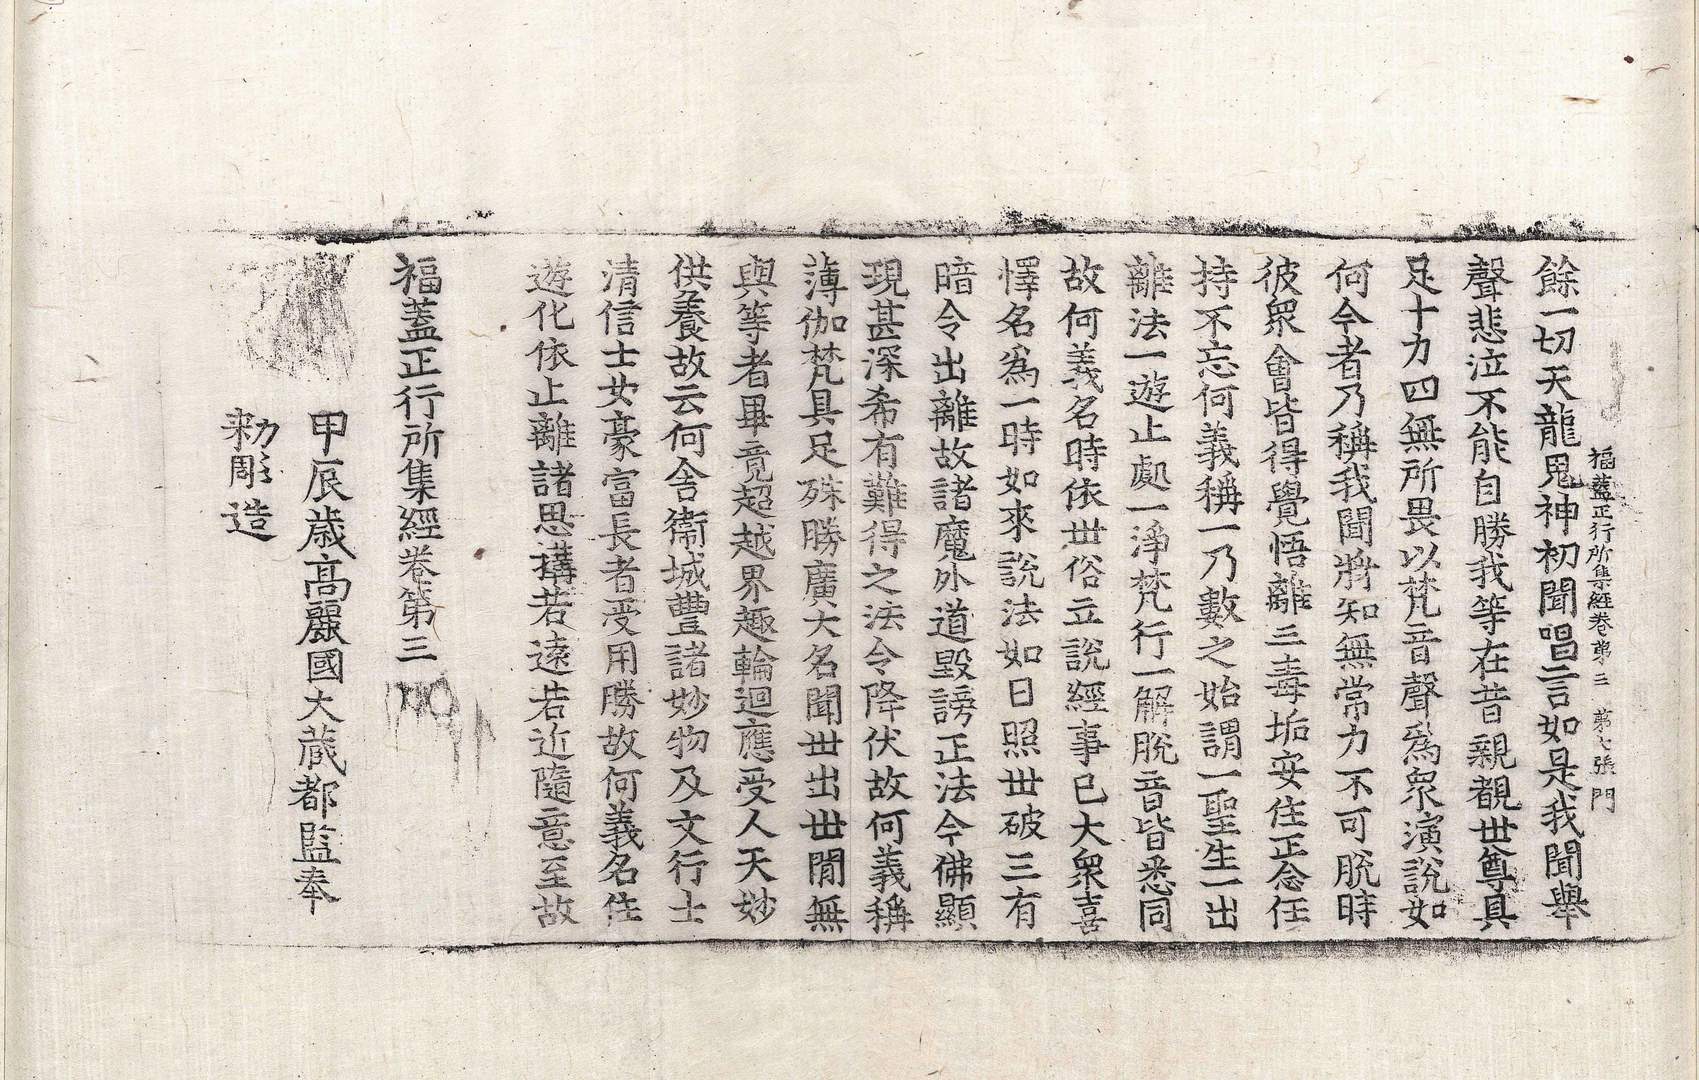 福蓋正行所集經卷第三　第七張　門
餘一切天龍鬼神初聞唱言如是我聞舉
聲悲泣不能自勝我等在昔親覩世尊具
足十力四無所畏以梵音聲爲衆演說如
何今者乃稱我聞將知無常力不可脫時
彼衆會皆得覺悟離三毒垢安住正念任
持不忘何義稱一乃數之始謂一聖生一出
離法一遊止處一淨梵行一解脫音皆悉同
故何義名時依世俗立說經事已大衆喜
懌名爲一時如來說法如日照世破三有
暗令出離故諸魔外道毀謗正法今佛顯
現甚深希有難得之法令降伏故何義稱
薄伽梵具足殊勝廣大名聞世出世閒無
與等者畢竟超越界趣輪迴應受人天妙
供養故云何舍衞城豐諸妙物及文行士
清信士女豪富長者受用勝故何義名住
遊化依止離諸思搆若遠若近隨意至故
福蓋正行所集經卷第三
甲辰歲高麗國大藏都監奉
勑彫造